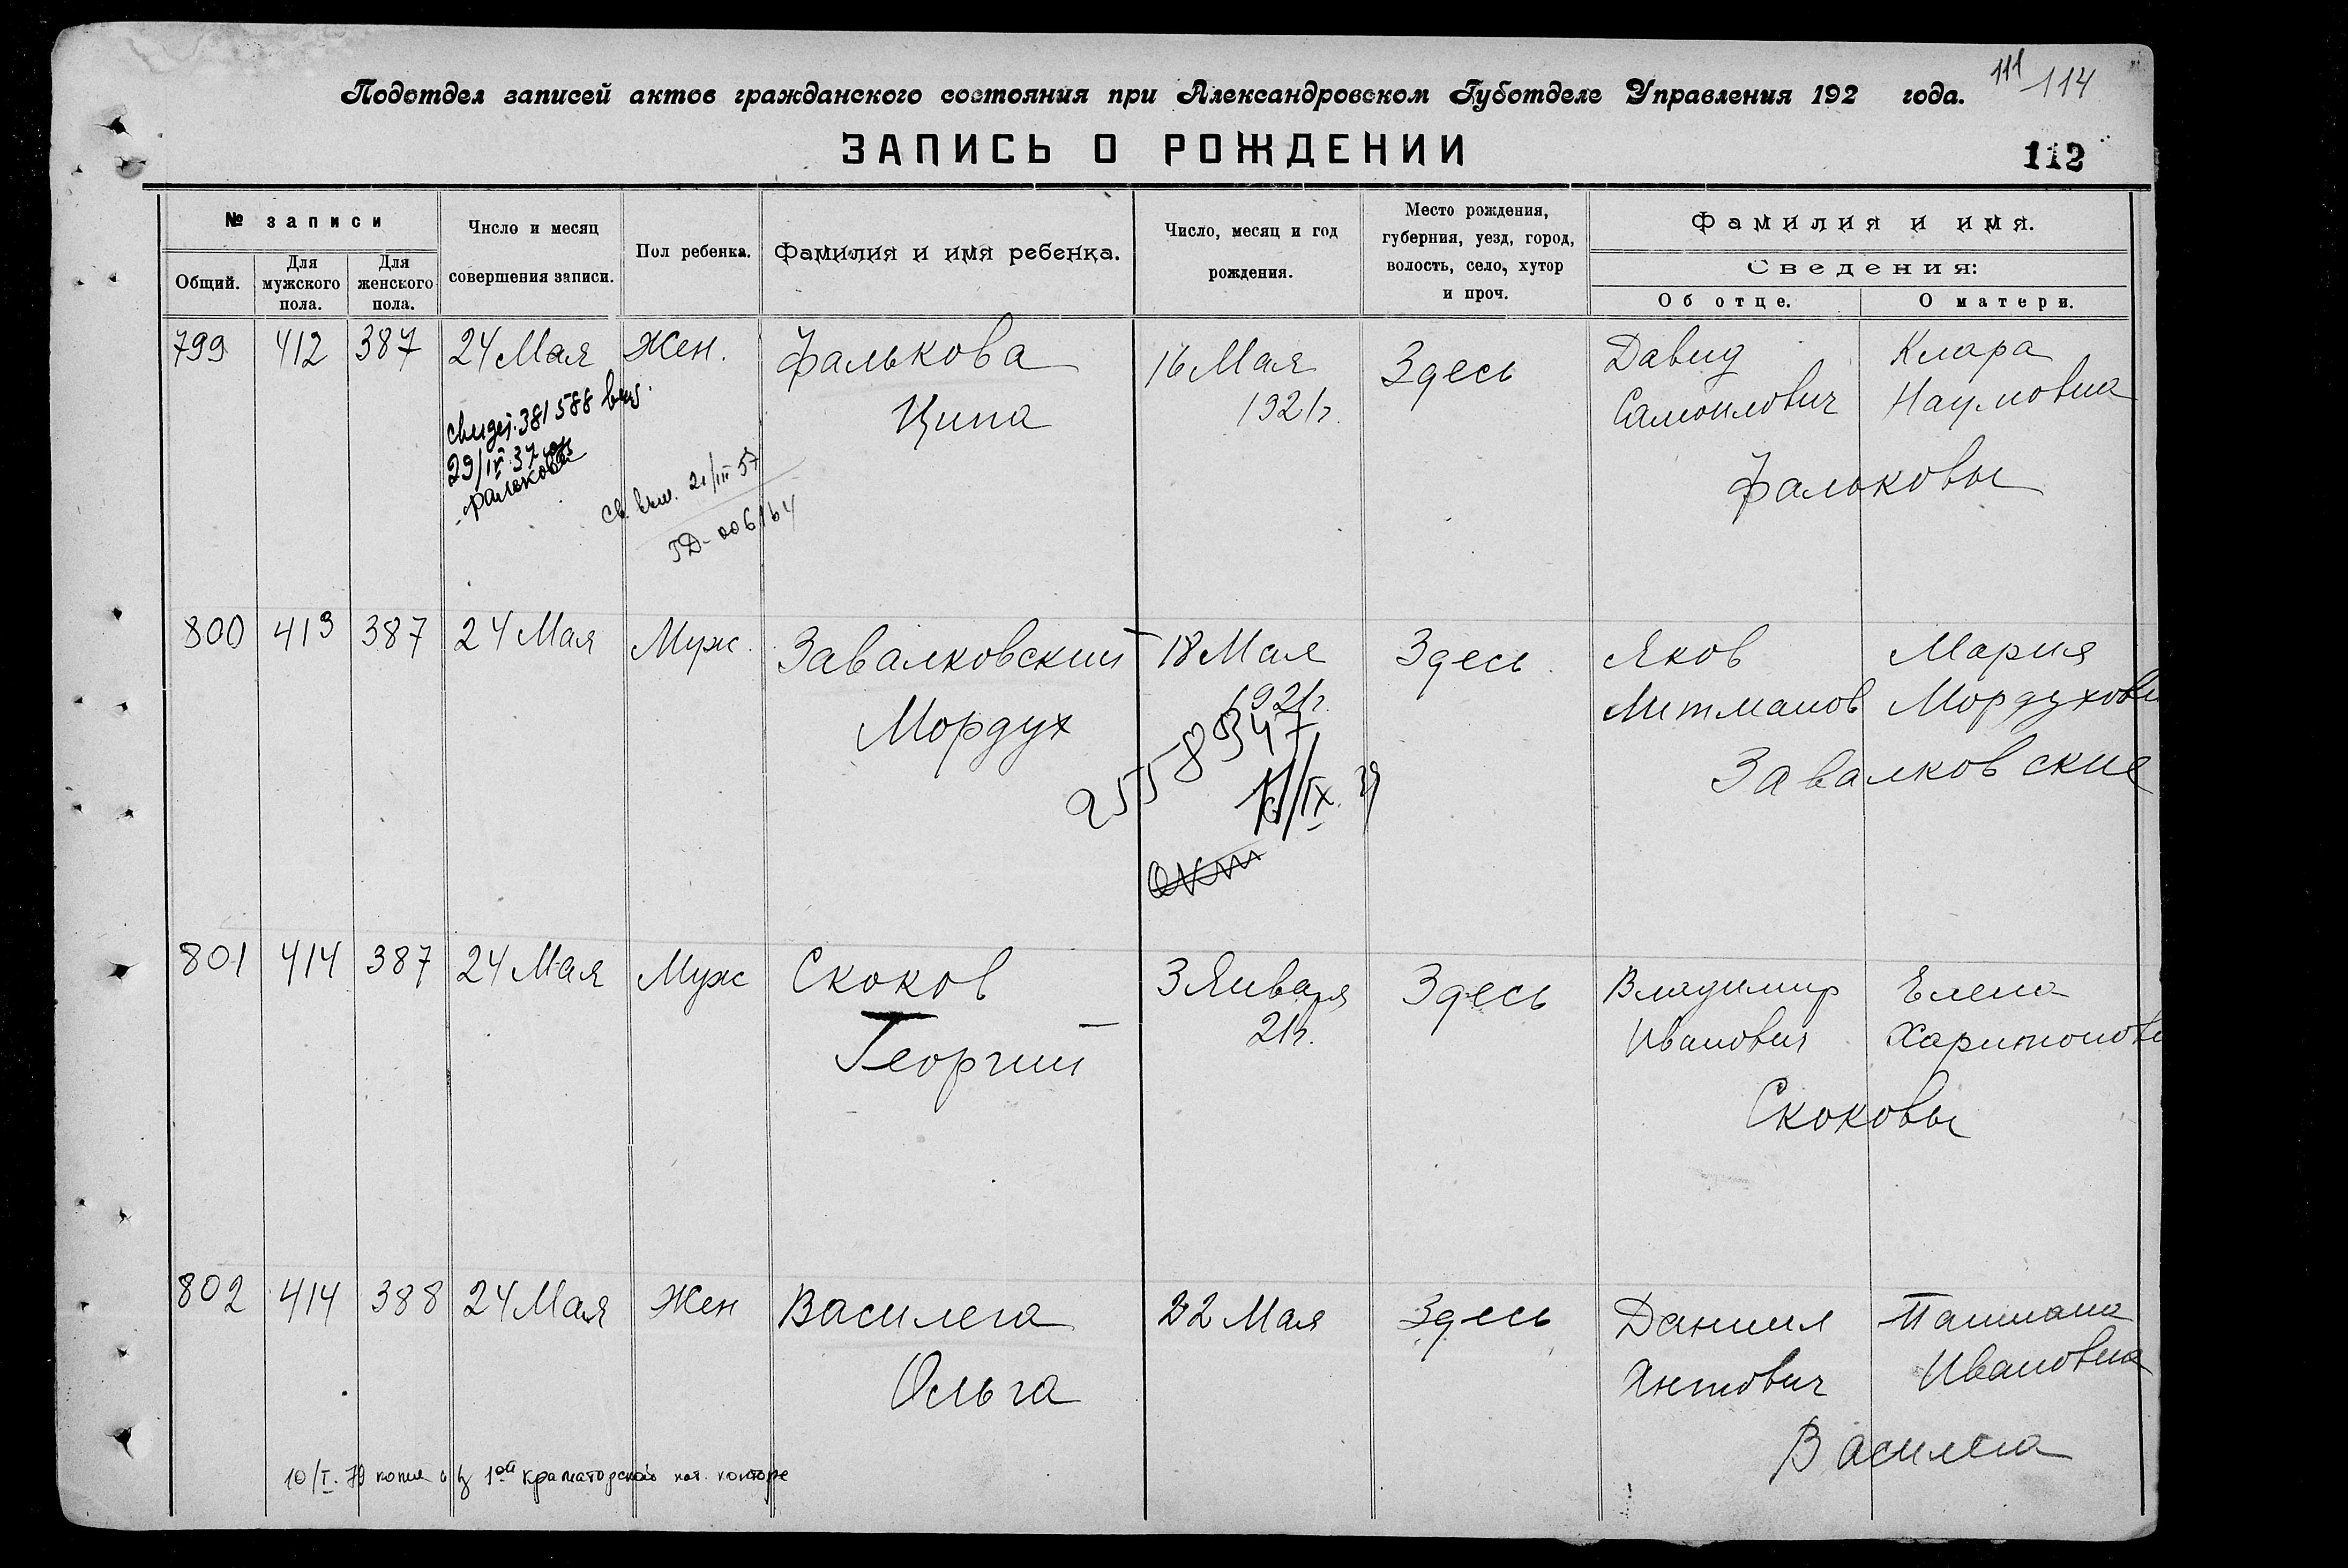 111 114
Подотдел записей актов гражданского состояния при Александровском Губотделе Управления 192 года.
ЗАПИСЬ О РОЖДЕНИИ
112
№ записи
Общий.
Для мужского пола.
Для женского пола.
Число и месяц совершения записи.
Пол ребенка.
Фамилия и имя ребенка.
Число, месяц и год рождения.
Место рождения, губерния, уезд, город, волость, село, хутор и проч.
Фамилия и имя.
Сведения:
Об отце.
О матери.
799 412 387 24 Мая Жен. Фалькова 16 Мая Здесь Давид Клара
Ципа 1921г. Самоилович Наумовна
Фальковы
381588
29/IV 37
Фалькова
21/III 57
006164
800 413 387 24 Мая Муж. Завалковский 18 Мая Здесь. Яков Мария
Мордух 1921г. Литманов Мордухов
Завалковские
IX
801 414 387 24 Мая Муж Скоков 3 Января Здесь Владимир Елена
Георгий 21г. Иванович Харитонов
Скоковы
802 414 388 24 Мая Жен Василега 22 Мая Здесь Даниил Татиана
Ольга Антович Ивановна
Василега
10/I. 79 копия 1ой Краматорской нот. конторе